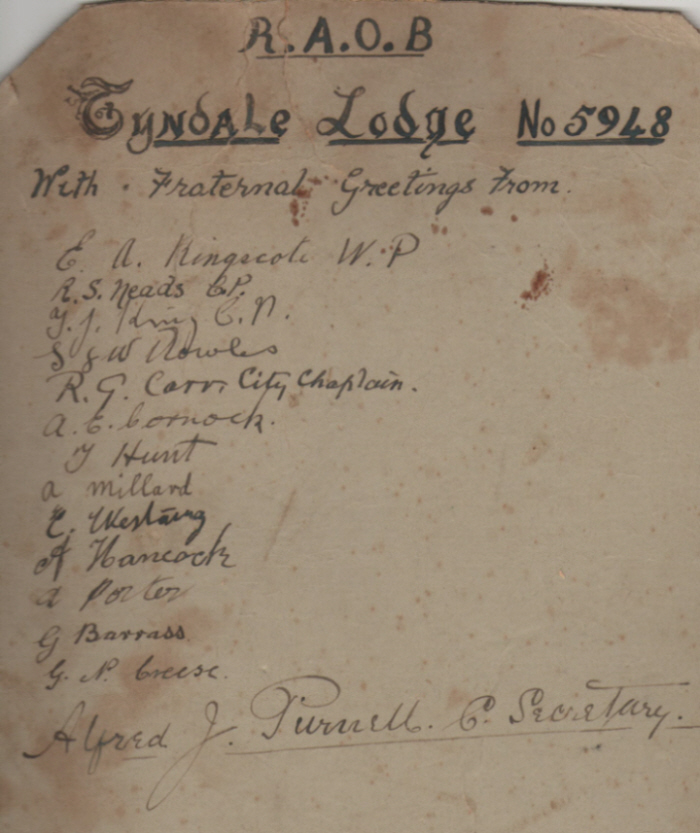 R.A.O.B
Tyndale Lodge No 5948
With Fraternal Greetings From.
E. A. Kingscote W.P
R.S. Neads C.P.
T. J. King C.P.
S J W Rowles
R. G. Carr City Chaplain.
A. E. Cornock.
T Hunt
A Millard
E.
A Hancock
A Porter
G Barrass
G. N. Creese.
Alfred J. Purnell. C. Secretary.